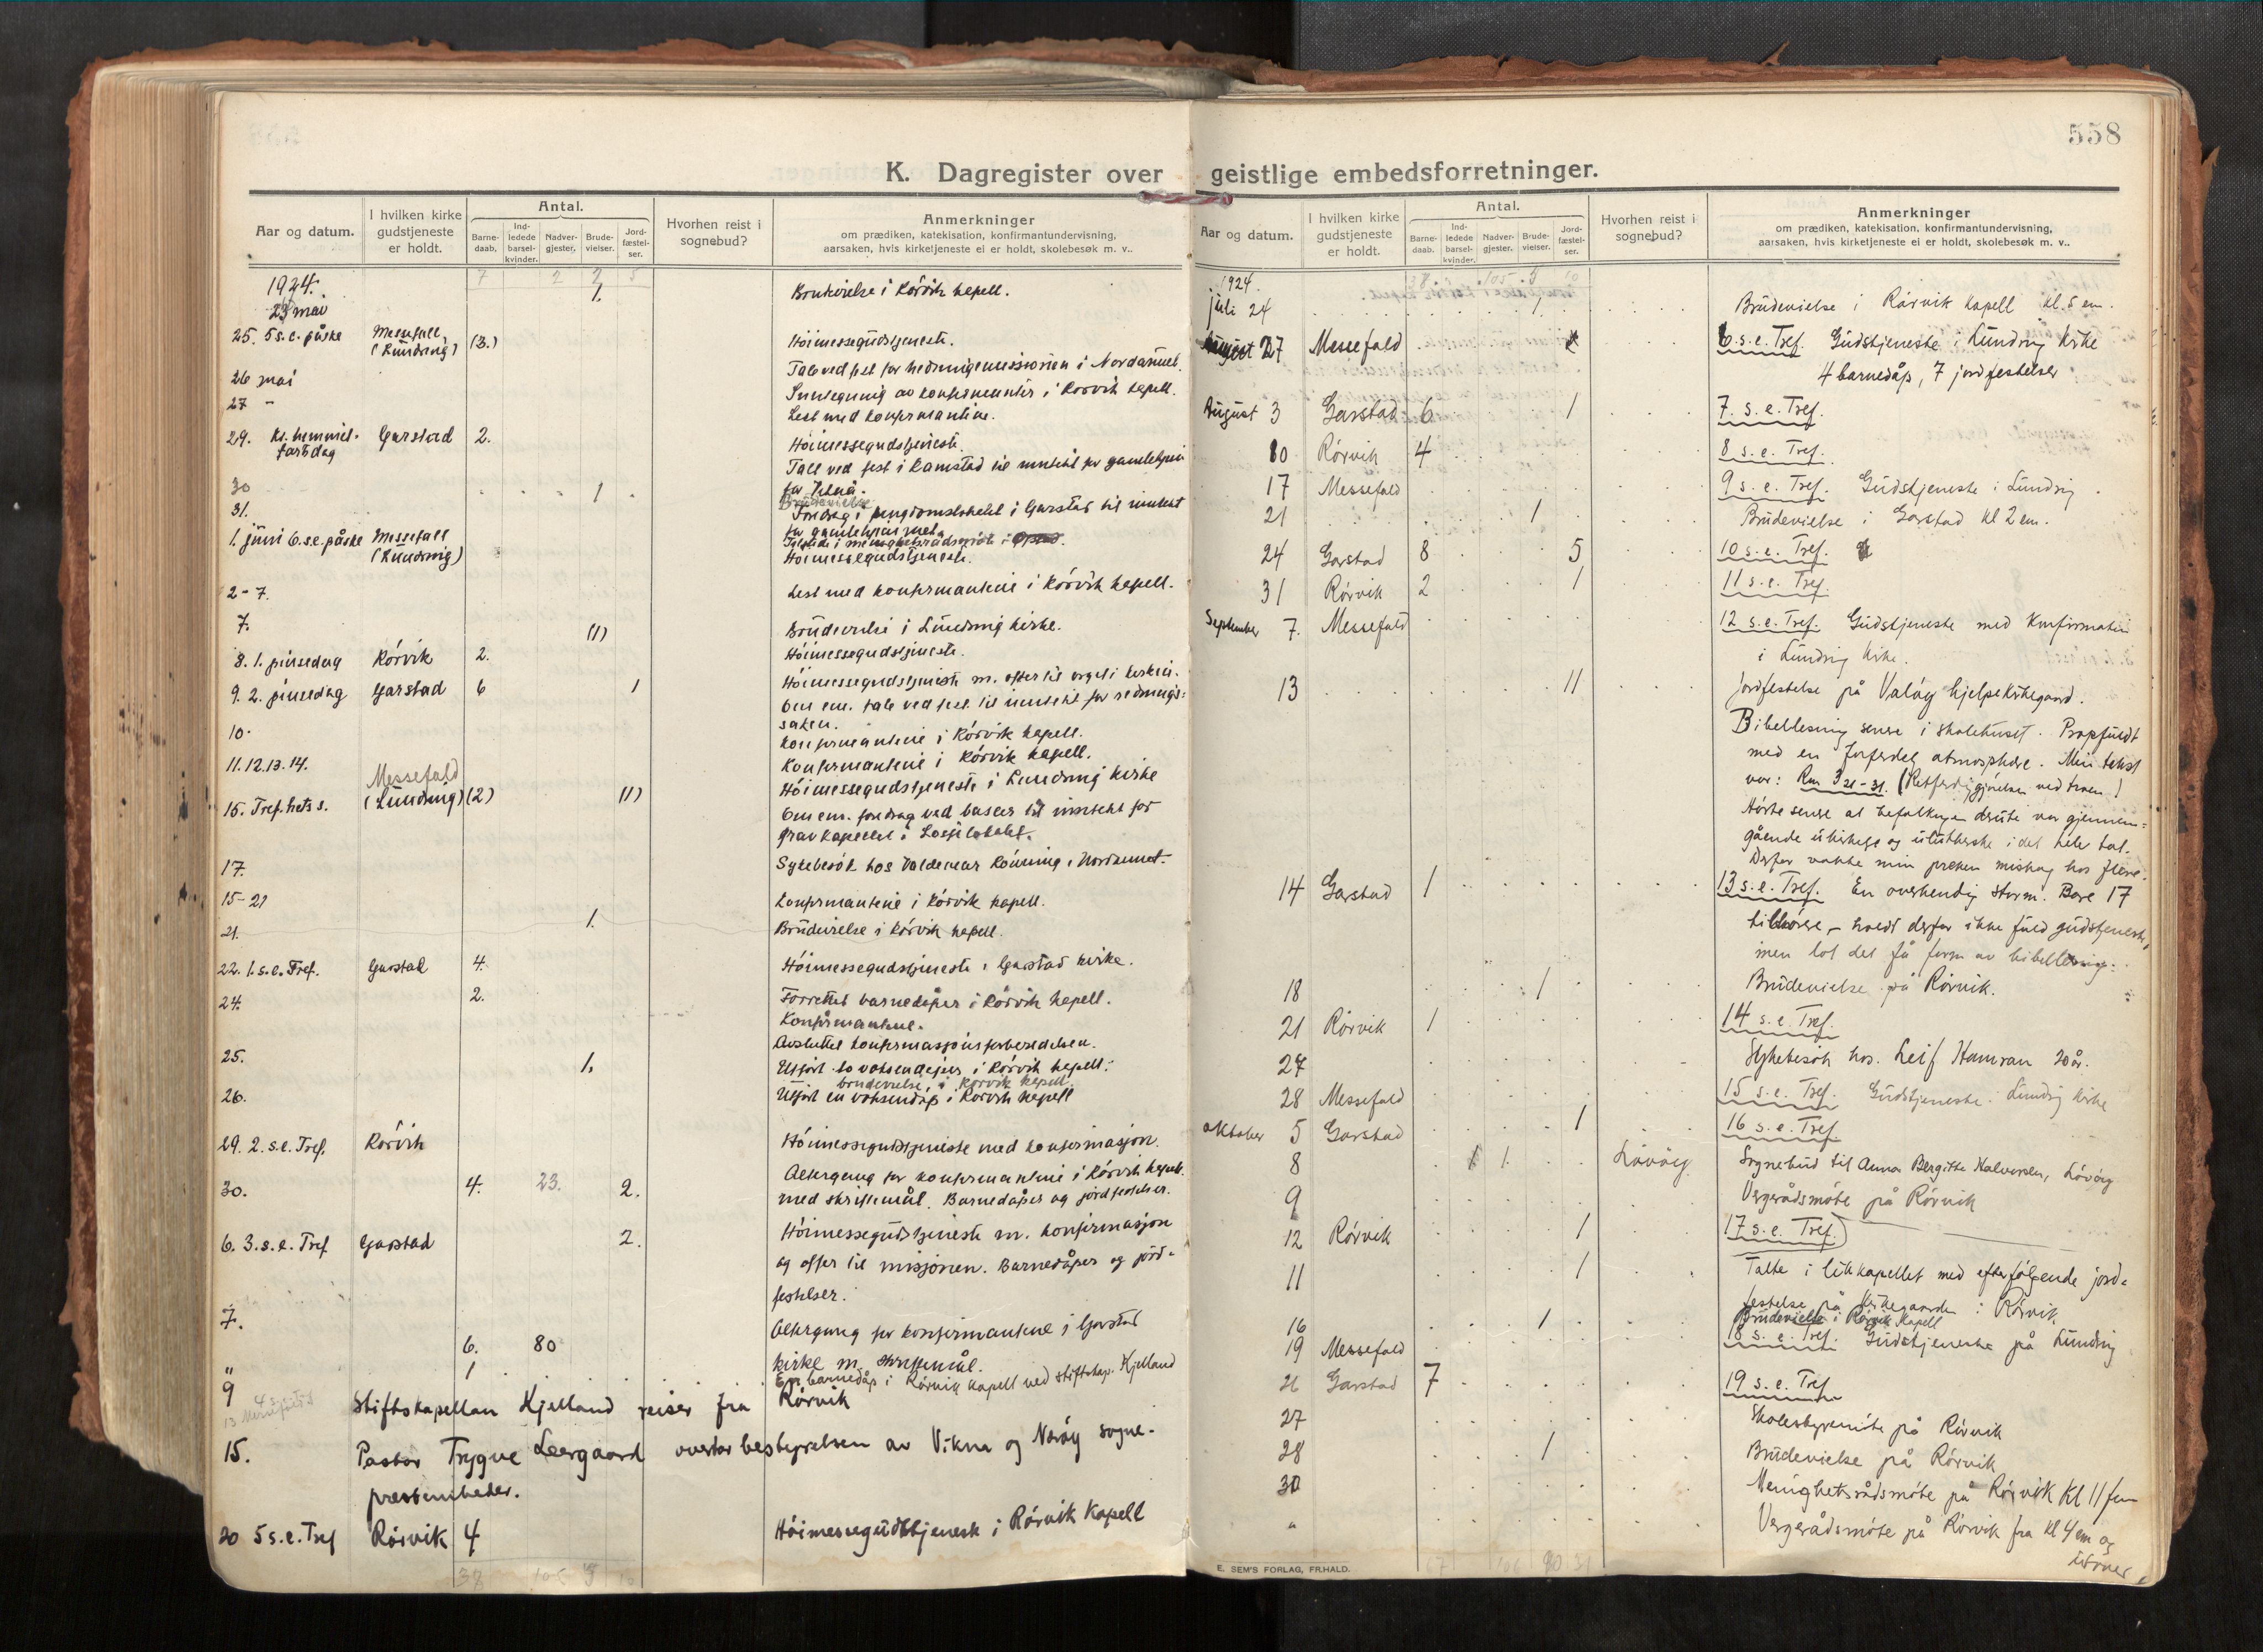 558
K. Dagregister over geistlige embedsforretninger.
Aar og datum.
I hvilken kirke gudstjeneste er holdt.
Antal.
Barne-daab.
Ind-ledede barsel-kvinder.
Nadver-gjester.
Brude-vielser.
Jord-fæstel-ser.
Hvorhen reist i sognebud?
Anmerkninger
om prædiken, katekisation, konfirmantundervisning,
aarsaken, hvis kirketjeneste ei er holdt, skolebesøk m. v..
7 2 2 5
1924.
23 mai 1. Brudevielse i Rórvik kapell.
25. 5 s.e. påske Messefall, (Lundring) (3.) Hóimessegudstjeneste.
26 mai Tale ved fest for hedningemissionen i
27 - Lest med konfirmantene.
29. Kr. himmel-fartsdag Garstad 2. Hóimessegudstjeneste.
Tale ved fest i Ramstad til inntekt for gamlehjem
30 1 Brudevielse
31. Foredrag i ungdomslokalet i Garstad til inntekt
for gamlehjemmet.
1. juni 6.s.e. påske Messefall (Lundring) Hóimessegudstjeneste.
2-7. Lest med konfirmantene i Rórvik kapell.
7. (1) Brudevielse i Lundring kirke.
8. 1. pinsedag Rórvik 2. Hóimessegudstjeneste.
9. 2. pinsedag Garstad 6 1 Hóimessegudstjeneste m. offer til orgel i kirken.
Om em. tale ved fest til inntekt for rednings-
saken.
10. Konfirmantene i Rórvik kapell.
11. 12. 13. 14. Konfirmantene i Rórvik kapell.
15. Tref.hets s. Messefald (Lundring) (2) (1) Hóimessegudstjeneste i Lundring kirke
Om em. foredrag ved basar til inntekt for
gravkapellet i Losjelokalet.
17. Sykebesók hos Valdemar Rónning i
15-21 Konfirmantene i Rórvik kapell.
21. 1. Brudevielse i Rórvik kapell.
22. 1.s.e. Tref. Garstad 4. Hóimessegudstjeneste i Garstad kirke.
24. 2. Forrettet barnedåper i Rórvik kapell.
Konfirmantene.
Avsluttet konfirmasjonsforberedelsen.
25. 1. Utfórt to voksendåper i Rórvik kapell.
brudevielse i Rórvik kapell.
26. Utfórt en voksendåp i Rórvik kapell
29. 2. s.e. Tref. Rórvik Hóimessegudstjeneste med konfirmasjon.
30. 4. 23. 2. Altergang for konfirmantene i Rórvik kapell.
med skriftemål. Barnedåper og jordfestelser.
6. 3. s.e. Tref Garstad 2. Hóimessegudstjeneste m. konfirmasjon
og offer til misjonen. Barnedåper og jord-
festelser.
7. 6. 80 Altergang for konfirmantene i Garstad
kirke m. skriftemål.
" 1 En barnedåp i Rórvik kapell ved stiftskap. Kjelland
9 Stiftskapellan Kjelland reiser fra Rórvik
15. Pastor Trygve Leergaard overtar bestyrelsen av Vikna og Neróy sogne-
prestembeder.
20 5 s.e. Tref Rórvik 4 Hóimessegudstjeneste i Rórvik Kapell
Aar og datum.
I hvilken kirke gudstjeneste er holdt.
Antal.
Barne-daab.
Ind-ledede barsel-kvinder.
Nadver-gjester.
Brude-vielser.
Jord-fæstel-ser.
Hvorhen reist i sognebud?
Anmerkninger
om prædiken, katekisation, konfirmantundervisning,
aarsaken, hvis kirketjeneste ei er holdt, skolebesøk m. v..
1924
juli 24 1 Brudevielse i Rórvik kapell kl. 5 em.
27 Messefald 6. s.e. Tref. Gudstjeneste i Lundring Kirke
4 barnedåp, 7 jordfestelser
August 3 Garstad 6 1 7. s.e. Tref.
10 Rórvik 4 8 s.e. Tref.
17 Messefald 9 s.e. Tref. Gudstjeneste i Lundring.
21 1 Brudevielse i Garstad kl 2 em.
24 Garstad 8 5 10 s.e. Tref.
31 Rórvik 2 1 11 s.e. Tref.
September 7. Messefald 12 s.e. Tref. Gudstjeneste med Konfirmation
i Lundring kirke.
13 11 Jordfestelse på Valóy hjelpekirkegaard.
Bibellesning senere i skolehuset. Propfuldt
med en forferdelig atmosphære. Min tekst
var: Rm 3 21-31. (Retferdiggjórelsen ved troen)
Hórte senere at befolkningen derute var gjennem-
gående ukirkelig og ulutherske i det hele tat.
Derfor vakte min preken mishag hos flere.
14 Garstad 1 13 s.e. Tref. En overhendig storm. Bare 17
tilhórere, - holdt derfor ikke fuld gudstjeneste,
men lot det få form av bibellesning.
18 1 Brudevielse på Rórvik.
21 Rórvik 1 14 s.e. Tref.
27 Sykebesók hos Leif Hamran 20 år.
28 Messefald 15 s.e. Tref. Gudstjeneste. Lundring kirke
Oktober 5 Garstad 1 16 s.e. Tref
8 1 1 Lóvóy Sognebud til Anna Bergitte Halvorsen, Lóvóy
9 Vergerådsmóte på Rórvik
12 Rórvik 1 17 s.e. Tref.
11 1 Talte i likkapellet med efterfólgende jord-
festelse på kirkegaarden i Rórvik.
16 1 Brudevielse i Rórvik Kapell
19 Messefald 18 s.e. Tref. Gudstjeneste på Lundring
26 Garstad 7 19 s.e. Tref
27 Skolestyremóte på Rórvik
28 1 Brudevielse på Rórvik
30 Menighetsrådsmóte på Rórvik Kl 11 fm
" Vergerådsmóte på Rórvik fra kl 4 em og
utover
E. SEM'S FORLAG, FR.HALD.